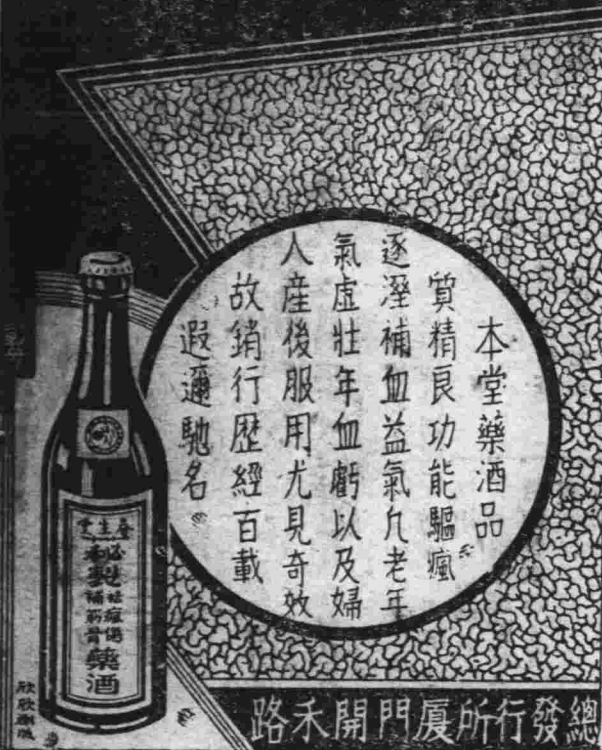 本堂藥酒品
質精良功能驅瘋
逐溼補血益氣凢老年
氣虛壯年血虧以及婦
人產後服用尤見奇效
故銷行歷經百載
遐邇馳名
春生堂
秘製
祛瘋傷
補筋骨
藥酒
總發行所廈門開禾路
欣欣